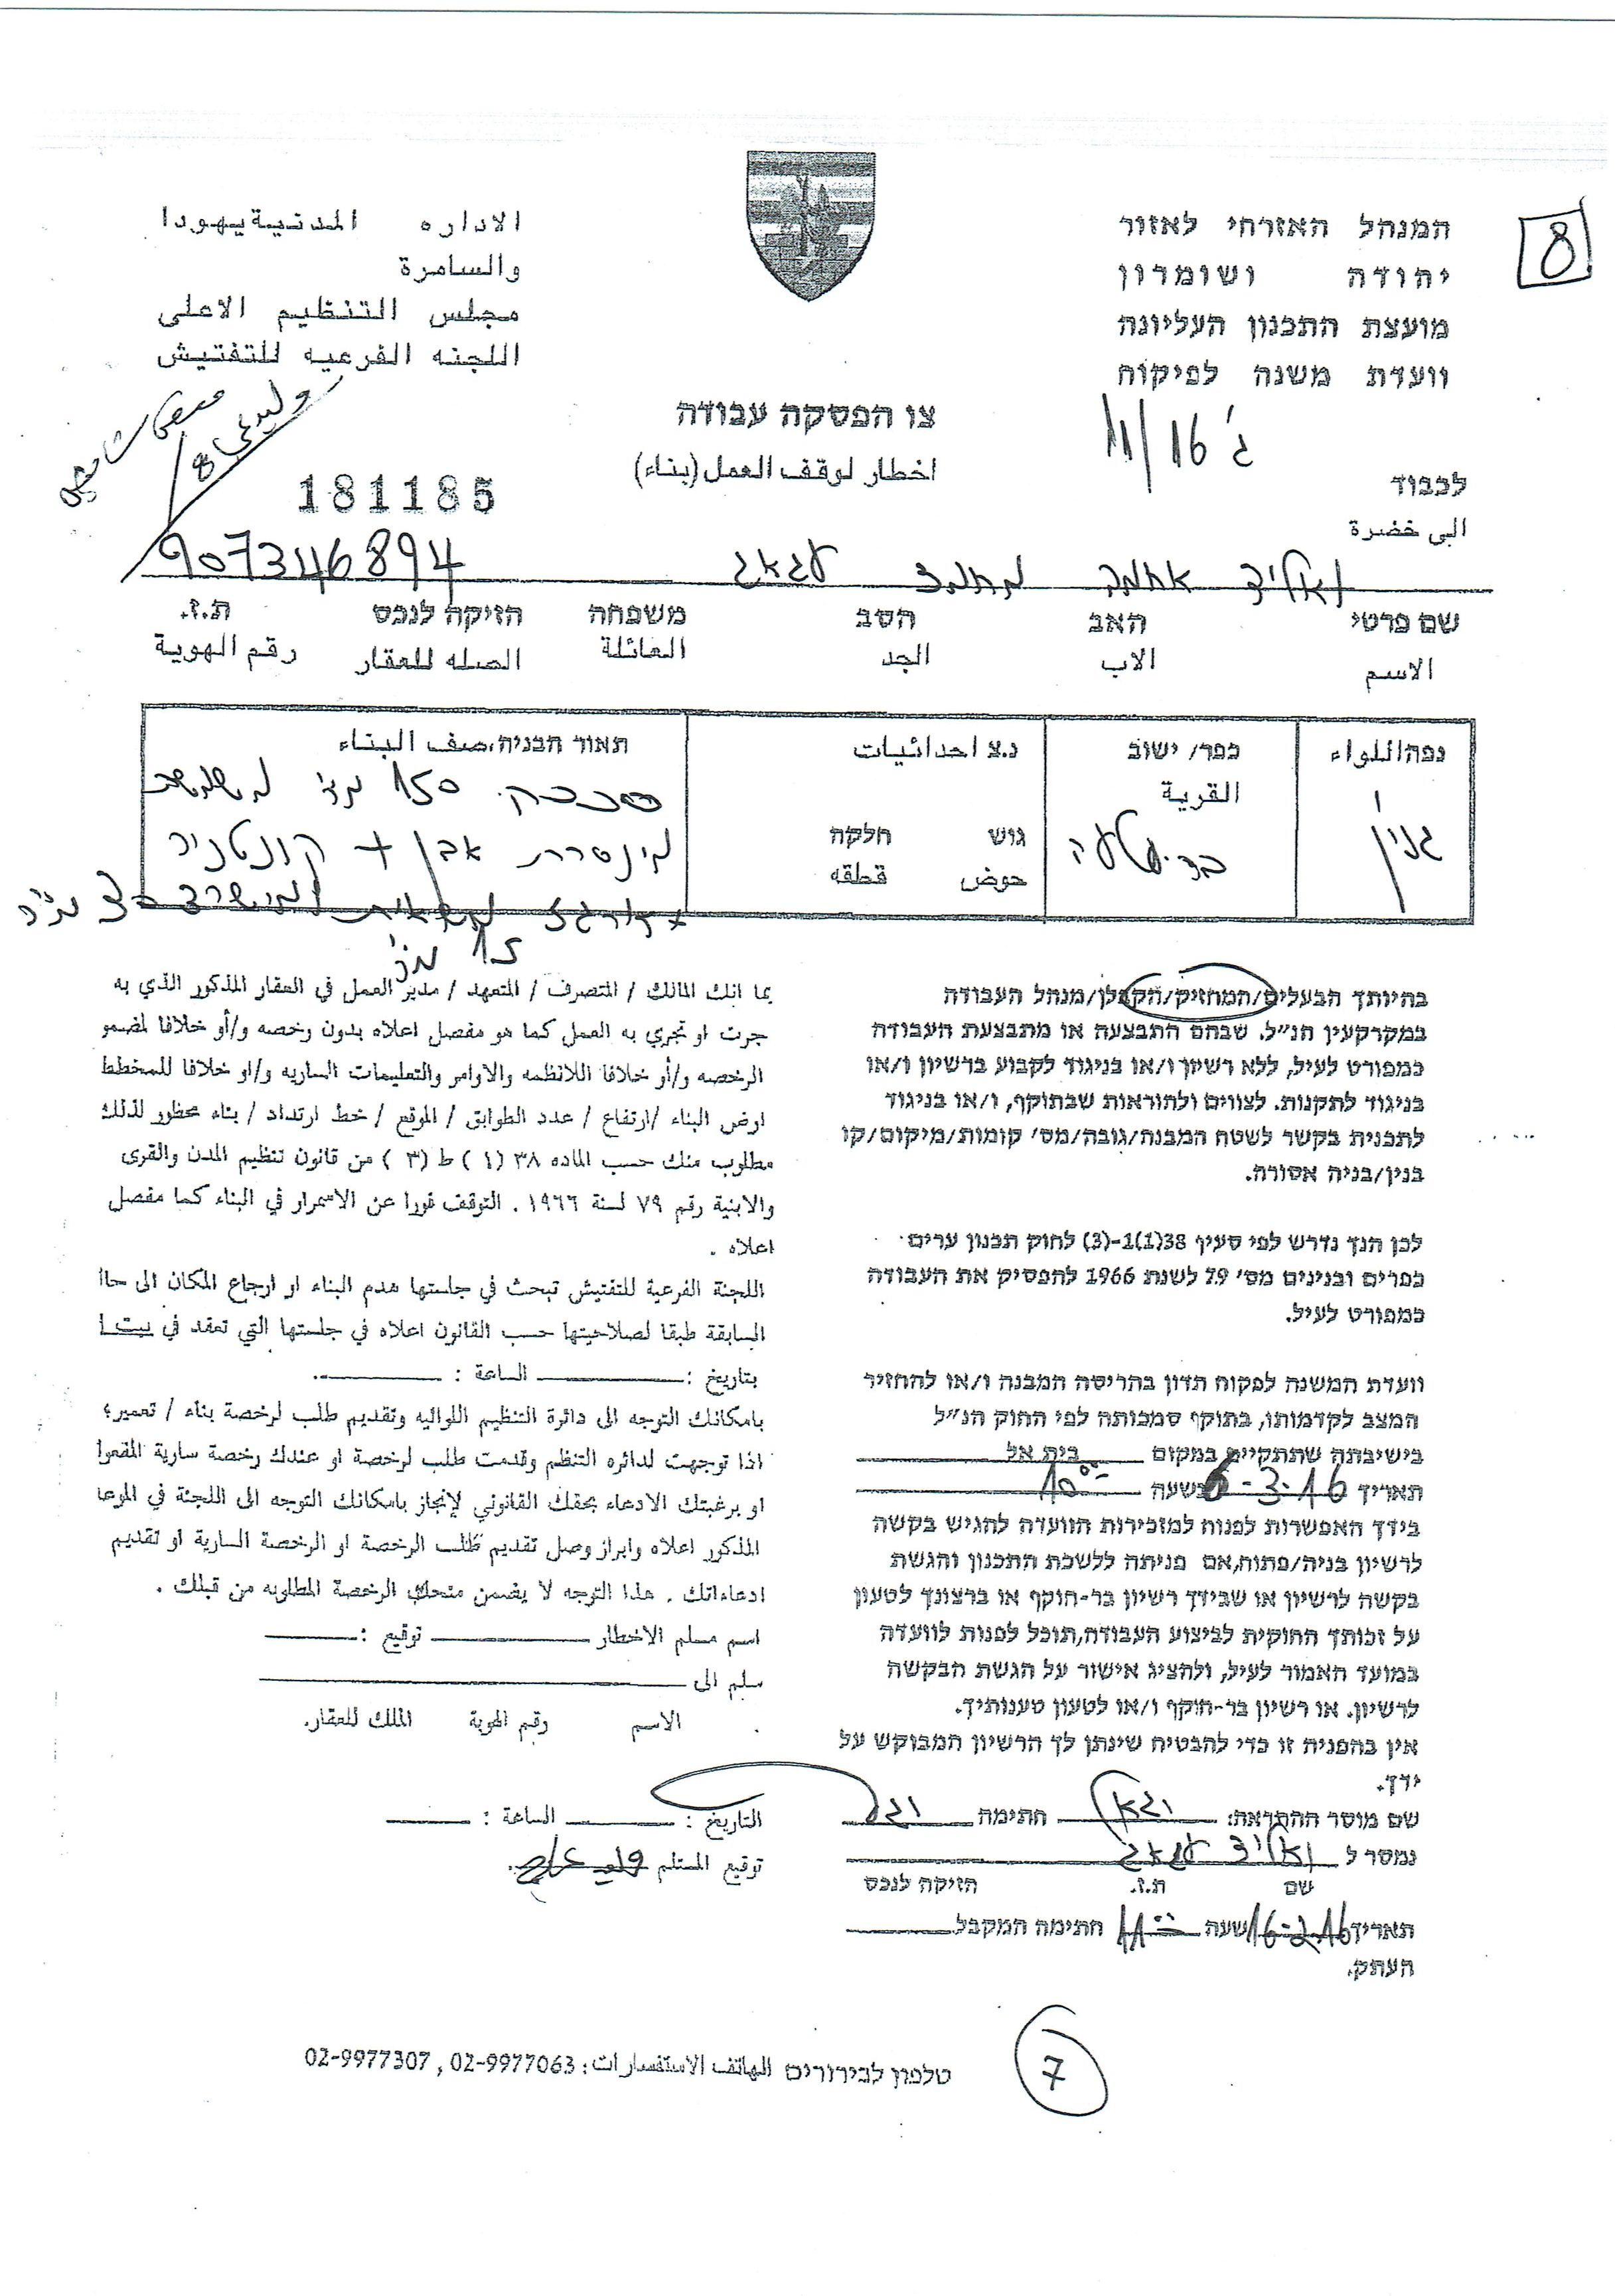 8
המנהל האזרחי לאזור
יהודה ושומרון
מועצת התכנון העליונה
וועדת משנה לפיקוח
الاداره المدنية يهودا
والسامرة
مجلس التنظيم الاعلى
اللجنه الفرعيه للتفتيش
צו הפסקה עבודה
اخطار لوقف العمل (بناء)
ג' 11/16
181185
לכבוד
الى حضرة
ואליד אחמד מחמד 907346894
שם פרטי האב הסב משפחה הזיקה לנכס ת.ז.
الاسم الاب الجد العائلة الصله للعقار رقم الهوية
נפה اللواء כפר/ ישוב נ.צ احداثيات תאור הבניה، صف البناء
القرية
סככה 150 מ"ר
ג'נין גוש חלקה
حوض قطقه
+ קונטנייר
15 מ"ר
בהיותך הבעלים/המחזיק/הקבלן/מנהל העבודה
במקרקעין הנ"ל. שבהם התבצעה או מתבצעת העבודה
כמפורט לעיל, ללא רשיון ו/או בניגוד לקבוע ברשיון ו/או
בניגוד לתקנות. לצווים ולהוראות שבתוקף, ו/או בניגוד
לתכנית בקשר לשטח המבנה/גובה/מס' קומות/מיקום/קו
בנין/בניה אסורה.
לכן הנך נדרש לפי סעיף 38(1)1-(3) לחוק תכנון ערים
כפרים ובנינים מס' 79 לשנת 1966 להפסיק את העבודה
כמפורט לעיל.
וועדת המשנה לפקוח תדון בהריסה המבנה ו/או להחזיר
המצב לקדמותו, בתוקף סמכותה לפי החוק הנ"ל
בישיבתה שתתקיים במקום בית אל
תאריך 6-3-16 בשעה 10:00
בידך האפשרות לפנות למזכירות הוועדה להגיש בקשה
לרשיון בניה/פתוח,אם פניתה ללשכת התכנון והגשת
בקשה לרשיון או שבידך רשיון בר-תוקף או ברצונך לטעון
על זכותך החוקית לביצוע העבודה,תוכל לפנות לוועדה
במועד האמור לעיל, ולהציג אישור על הגשת הבקשה
לרשיון. או רשיון בר-תוקף ו/או לטעון טענותיך.
אין בהפניה זו כדי להבטיח שינתן לך הרשיון המבוקש על
ידך.
שם מוסר ההתראה: חתימה
נמסר ל ואליד
שם ת.ז. הזיקה לנכס
תאריך 16-2-16 שעה 11:00 חתימה המקבל
העתק.
بما انك المالك / المتصرف / المتعهد / مدير العمل في العقار المذكور الذي به
جرت او تجري به العمل كما هو مفصل اعلاه بدون رخصه و/أو خلافا لمضمو
الرخصه و/أو خلافا اللانظمه والاوامر والتعليمات الساريه و/او خلافا للمخطط
ارض البناء /ارتفاع / عدد الطوابق / الموقع / خط ارتداد / بناء محظور لذلك
مطلوب منك حسب الماده ٣٨ (١) ط (٣) من قانون تنظيم المدن والقرى
والابنية رقم ٧٩ لسنة ١٩٦٦ . التوقف فورا عن الاسمرار في البناء كما مفصل
اعلاه .
اللجنة الفرعية للتفتيش تبحث في جلستها هدم البناء او ارجاع المكان الى حاا
السابقة طبقا لصلاحيتها حسب القانون اعلاه في جلستها التي تعقد في بيت ا
بتاريخ : الساعة :
بامكانك التوجه الى دائرة التنظيم اللوائيه وتقديم طلب لرخصة بناء / تعمير؛
اذا توجهت لدائره التنظم وقدمت طلب لرخصة او عندك رخصة سارية المفعوا
او برغبتك الادعاء بحقك القانوني لإنجاز باسكانك التوجه الى اللجنة في الموعا
المذكور اعلاه وابراز وصل تقديم طلب الرخصة او الرخصة السارية او تقديم
ادعاءاتك . هذا التوجه لا يضمن منحك الرخصة المطلوبه من قبلك .
اسم مسلم الاخطار توقيع :
سلم الى
الاسم رقم الهوية الملك للعقار.
التاريخ : الساعة :
توقيع المستلم
7
טלפון לבירורים الهاتف الاستفسارات : 02-9977063 , 02-9977307